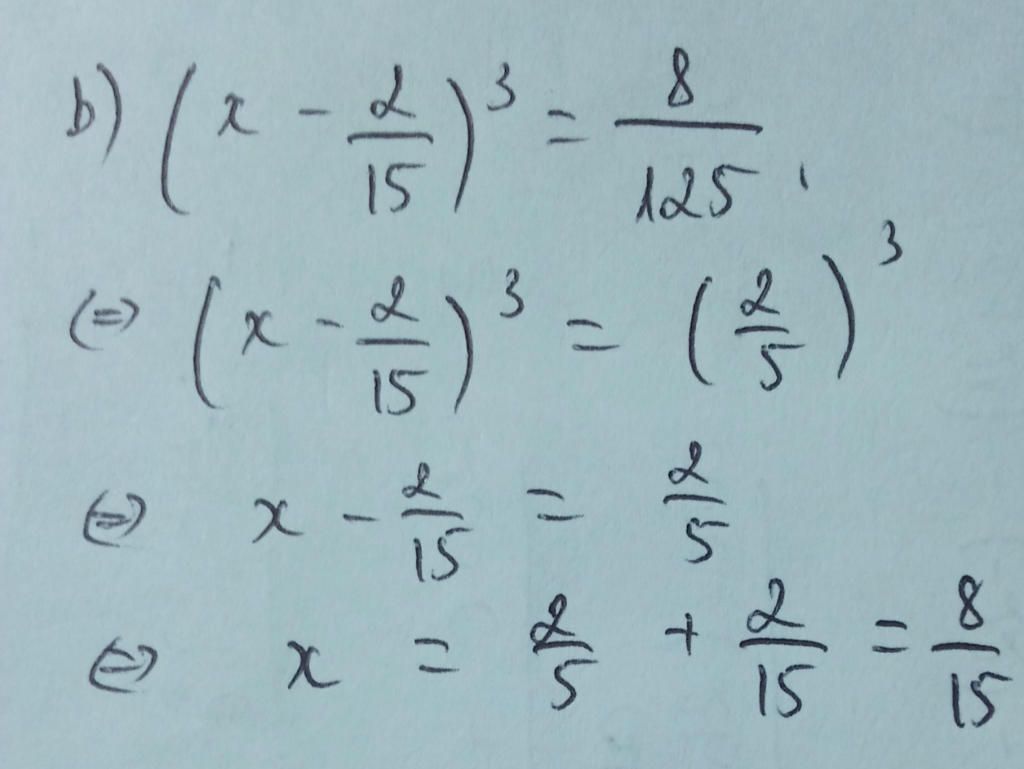 b) (x - 2/15)³ = 8/125,
(=) (x - 2/15)³ = (2/5)³
(=) x - 2/15 = 2/5
(=) x = 2/5 + 2/15 = 8/15